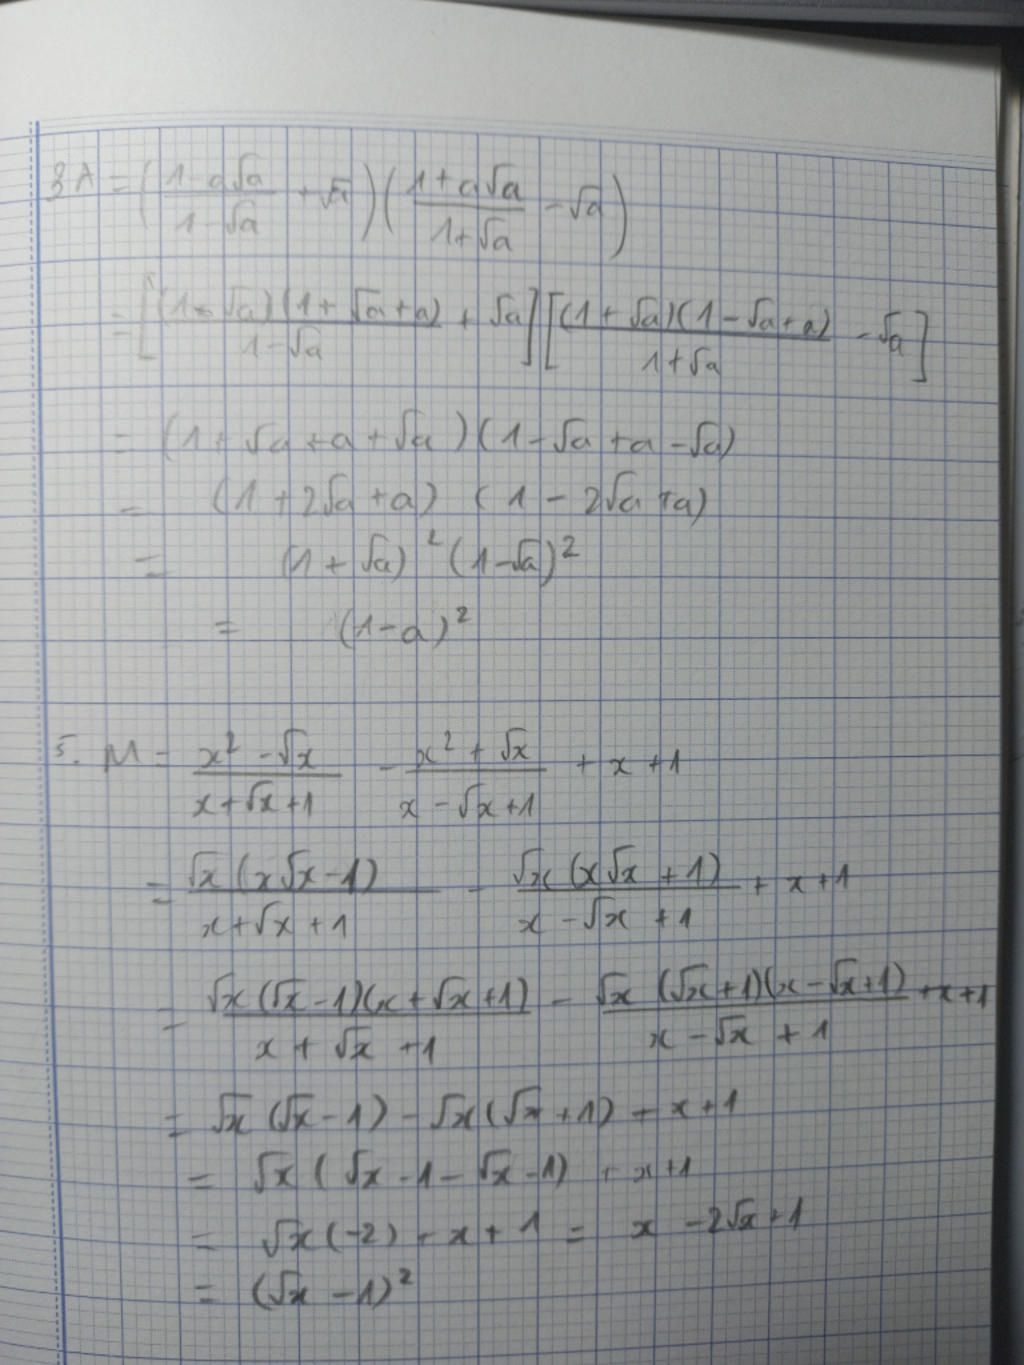 3 A = ( (1 - a√a)/(1 - √a) + √a )( (1 + a√a)/(1 + √a) - √a )
= [ (1 - √a)(1 + √a + a)/(1 - √a) + √a ][ (1 + √a)(1 - √a + a)/(1 + √a) - √a ]
= (1 + √a + a + √a)(1 - √a + a - √a)
= (1 + 2√a + a) (1 - 2√a + a)
= (1 + √a)² (1 - √a)²
= (1 - a)²
5. M = (x² - √x)/(x + √x + 1) - (x² + √x)/(x - √x + 1) + x + 1
= √x (x√x - 1)/(x + √x + 1) - √x (x√x + 1)/(x - √x + 1) + x + 1
= √x (√x - 1)(x + √x + 1)/(x + √x + 1) - √x (√x + 1)(x - √x + 1)/(x - √x + 1) + x + 1
= √x (√x - 1) - √x (√x + 1) + x + 1
= √x ( √x - 1 - √x - 1) + x + 1
= √x (-2) + x + 1 = x - 2√x + 1
= (√x - 1)²